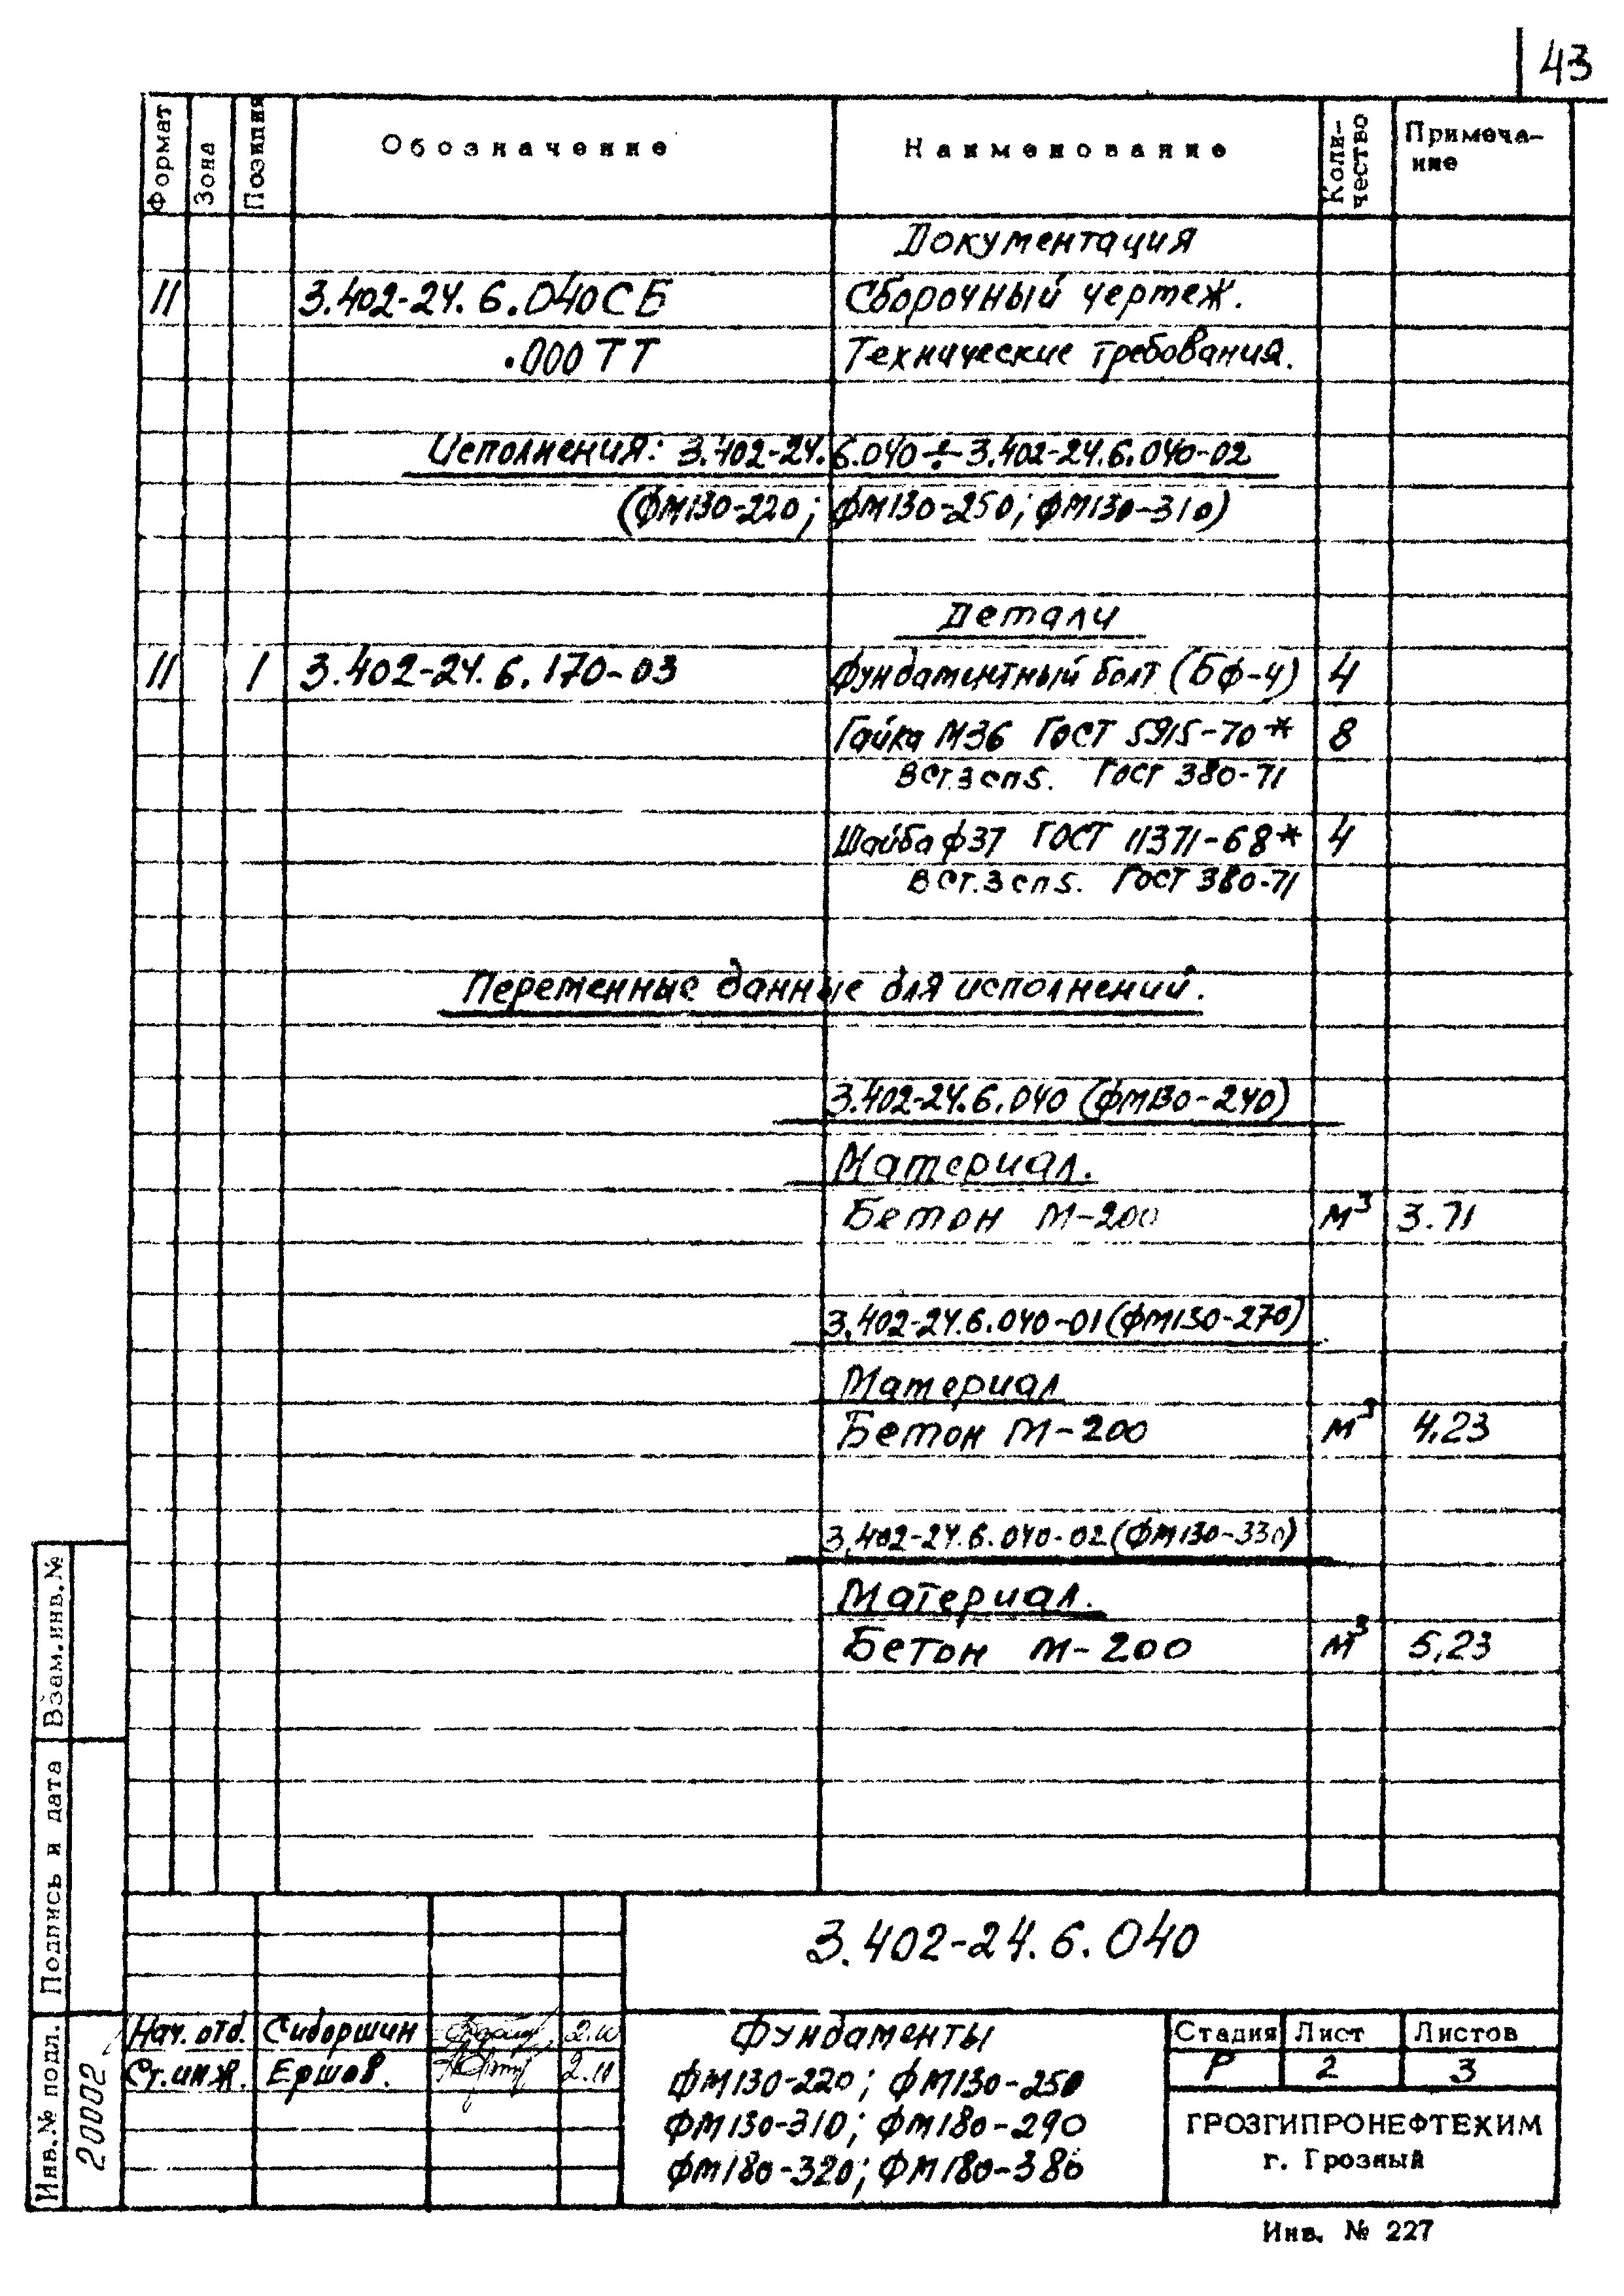 43
Формат Зона Позиция Обозначение Наименование Коли-чество Примеча-ние
Документация
11 3.402-24.6.040СБ Сборочный чертеж.
.000ТТ Технические требования.
Исполнения: 3.402-24.6.040÷3.402-24.6.040-02
(ФМ130-220; ФМ130-250; ФМ130-310)
Детали
11 1 3.402-24.6.170-03 Фундаментный болт (БФ-4) 4
Гайка М36 ГОСТ 5915-70* 8
ВСт.3сп5. ГОСТ 380-71
Шайба ф37 ГОСТ 11371-68* 4
ВСт.3сп5. ГОСТ 380-71
Переменные данные для исполнений.
3.402-24.6.040 (ФМ130-240)
Материал.
Бетон М-200 м³ 3.71
3.402-24.6.040-01 (ФМ130-270)
Материал
Бетон М-200 м³ 4,23
3.402-24.6.040-02 (ФМ130-330)
Материал.
Бетон М-200 м³ 5,23
Взам.инв.№
Подпись и дата
Инв.№ подл.
20002
3.402-24.6.040
Нач. отд. Сиборшин
Ст.инж. Ершов. 2.11
Фундаменты
ФМ130-220; ФМ130-250
ФМ130-310; ФМ180-290
ФМ180-320; ФМ180-380
Стадия Лист Листов
Р 2 3
ГРОЗГИПРОНЕФТЕХИМ
г. Грозный
Инв. № 227